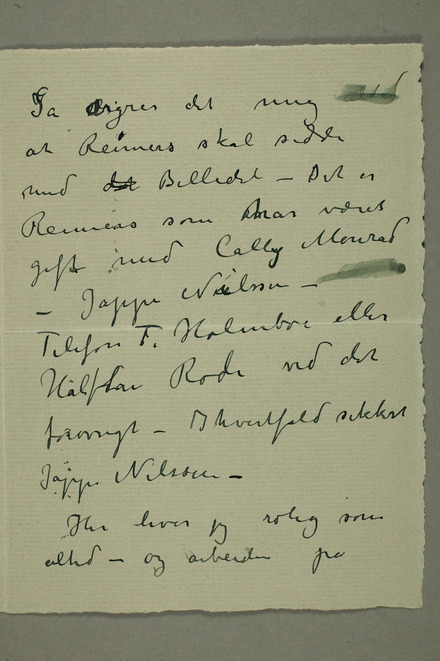 Så ærgres det mig
at Reimers skal sidde
med det Billedet – Det er
Reimers som har været
gift med Cally Monrad
– Jappe Nilssen –
Telefon T. Holmboe eller
Halfdan Rode ved det
forøvrigt – I hvertfald sikkert
Jappe Nilssen –
Her lever jeg rolig som
altid – og arbeider på